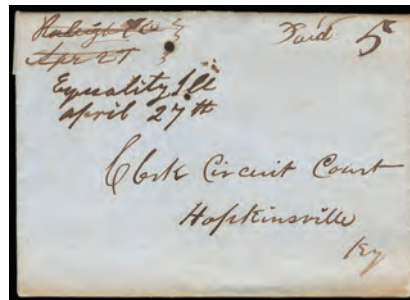 Raleigh Ills
Apr 27
Paid 5
Equality Ill
april 27th
Clerk Circuit Court
Hopkinsville
Ky